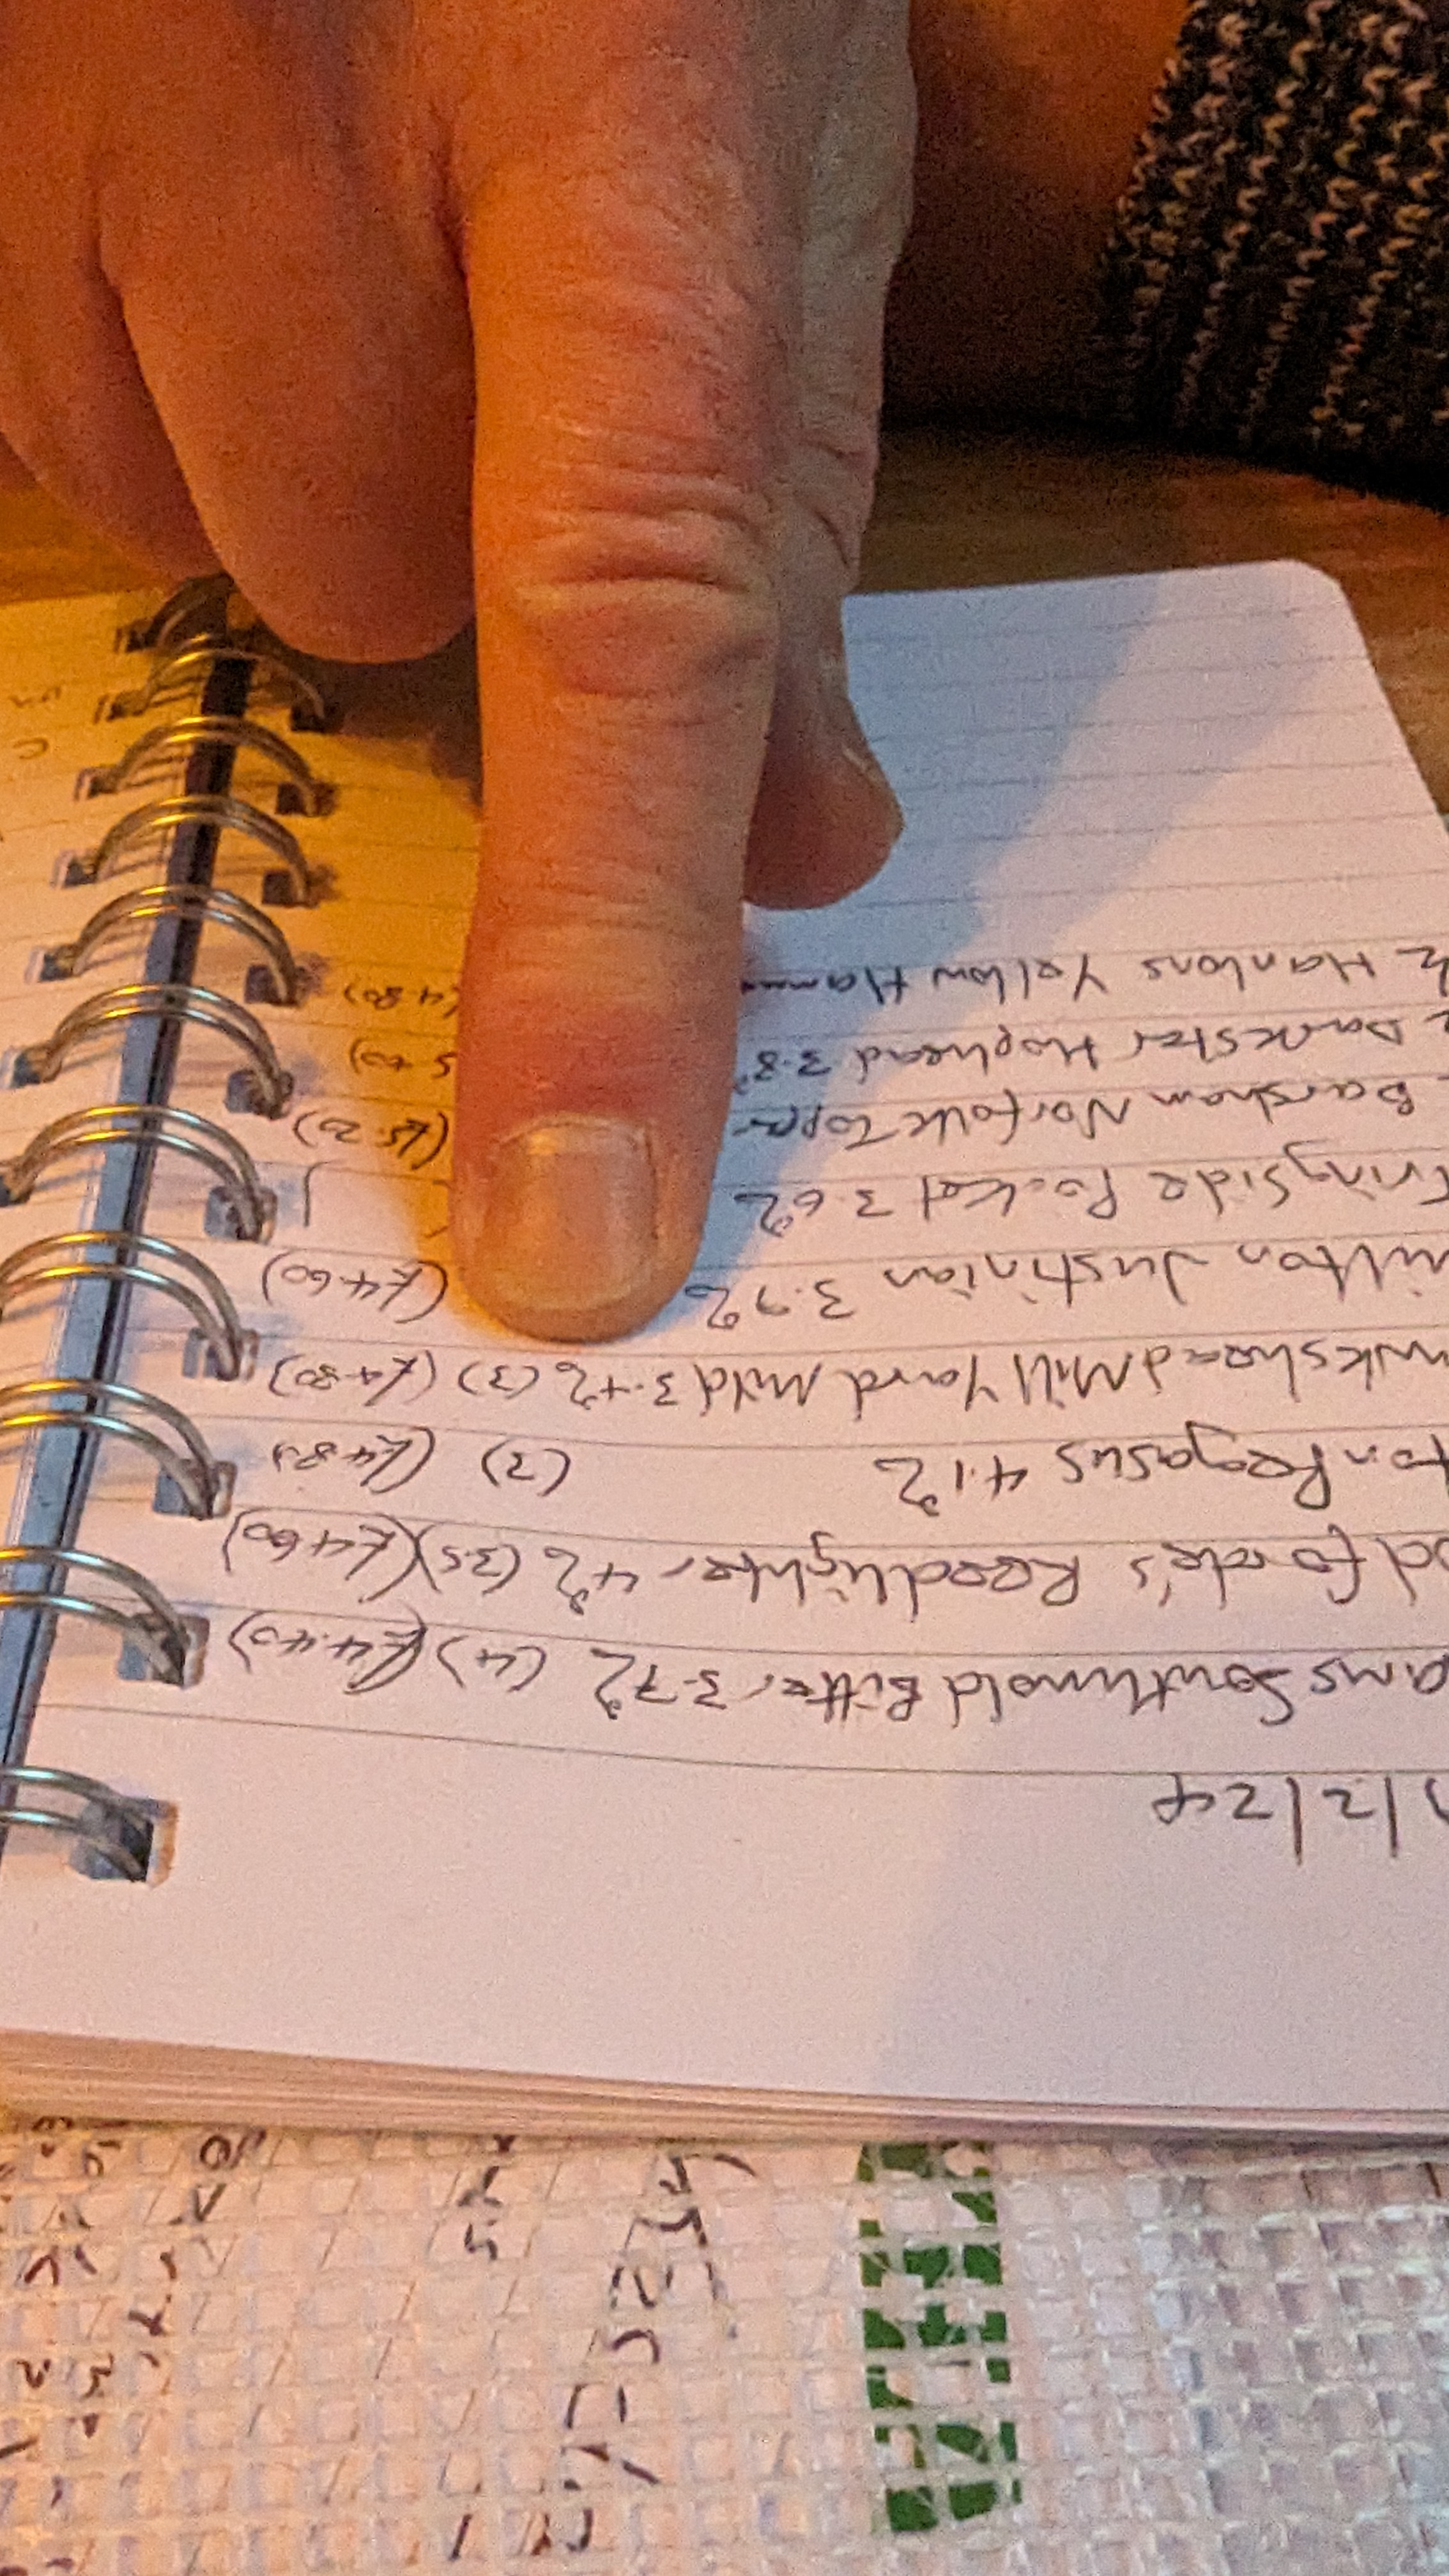 1/2/24
ams Southwold Bitter 3.7% (4) (£4.40)
odforde's Reedlighter 4% (3.5) (£4.60)
ton Pegasus 4.1% (3) (£4.80)
wkshead Mill Yard Mild 3.4% (3) (£4.80)
ilton Justinian 3.9% (£4.60)
ringside Pocket 3.6%
Barsham Norfolk Topper (£5.20)
Darkstar Hophead 3.8%
Hanlons Yellow Hammer (4.80)